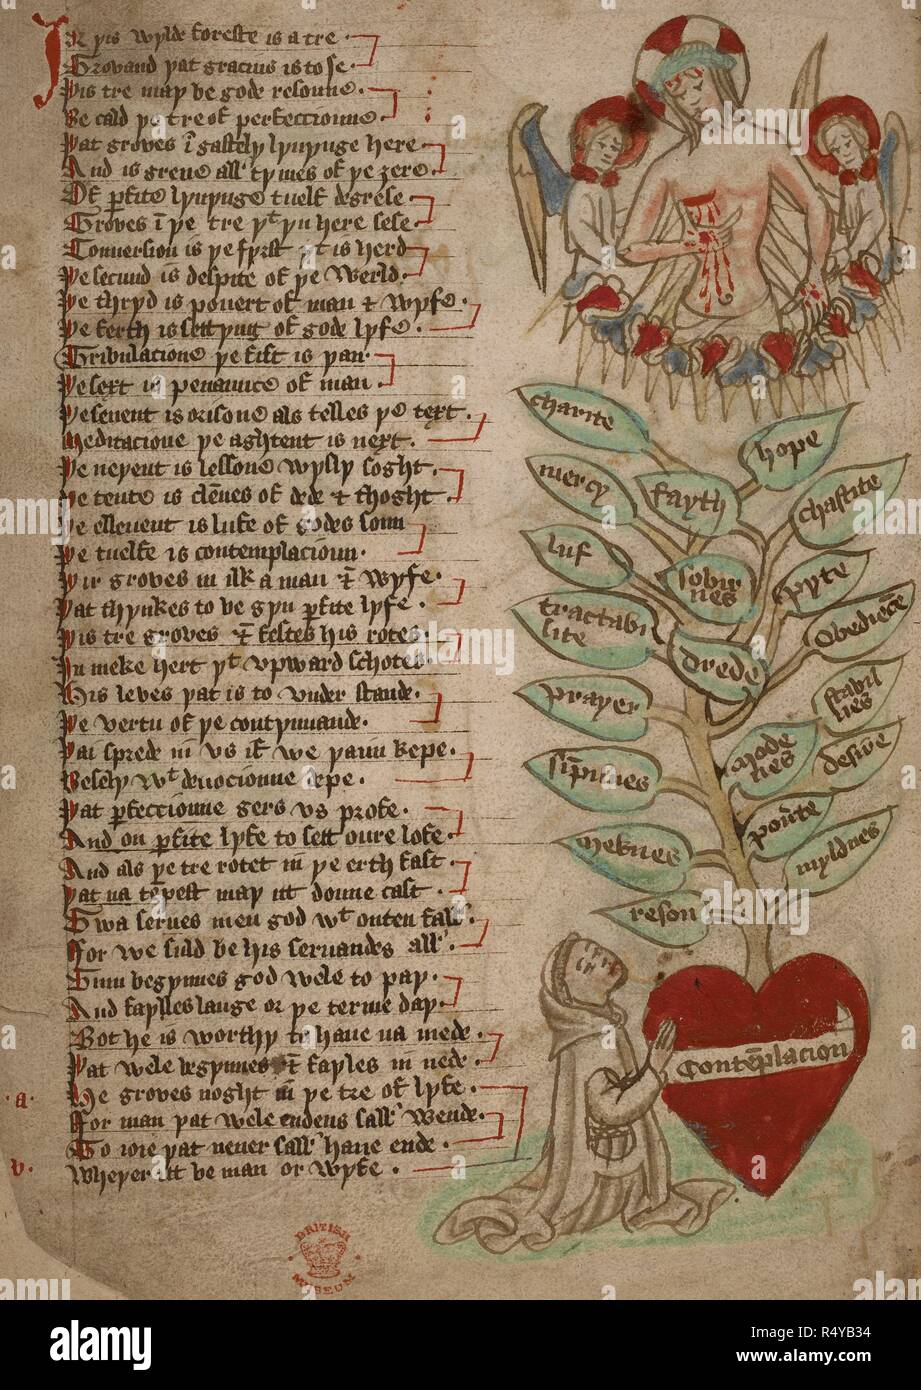 In yis wylde foreste is a tre
Growand yat gracius is to se
yis tre may be gode resoune
Be cald ye tre of perfeccioune
yat groves i gastely lyuynge here
And is grene all tymes of ye zere
Of pfite lyuynge tuelf degrese
Groves i ye tre yt yu here sese
Conuersion is ye fyrst yt is herd
ye secund is despite of ye werld
ye thryd is pouert of man & wyfe
ye ferth is settyng of gode lyfe
Tribulacione ye fift is pan
ye sext is penaunce of man
ye seuent is orisone als telles ye text
Meditacione ye aghtent is next
ye neyent is lessone wysly soght
ye tente is clenes of dede & thoght
ye elleuent is lufe of godes sonn
ye tuelfe is contemplacioun
yir groves in ilk a man & wyfe
yat thynkes to be gyn pfite lyfe
yis tre groves & festes his rotes
In meke hert yt vpward schotes
His leves yat is to vnder stande
ye vertu of ye contynuande
yai sprede in vs if we yaim kepe
Besely wt deuocionne depe
yat pfeccionne gers vs profe
And on pfite lyfe to sett oure lofe
And als ye tre rotet in ye erth fast
yat na tepest may it donne cast
Swa serues men god wt outen fall
For we suld be his seruandes all
Sum begynnes god wele to pay
And fayles lange or ye terme day
Bot he is worthy to haue na mede
yat wele begynnes & fayles in nede
He groves noght in ye tre of lyfe
For man yat wele endens sall wende
To ioie yat neuer sall haue ende
Wheyer it be man or wyfe
·a·
b·
charite
hope
mercy
fayth
chastite
luf
sobir
nes
pyte
tractabi
lite
drede
obediece
prayer
stabil
nes
mode
nes
desire
sipines
ponte
meknes
myldnes
reson
Conteplacion
BRITISH
MUSEUM
alamy
alamy
Image ID: R4YB34
www.alamy.com